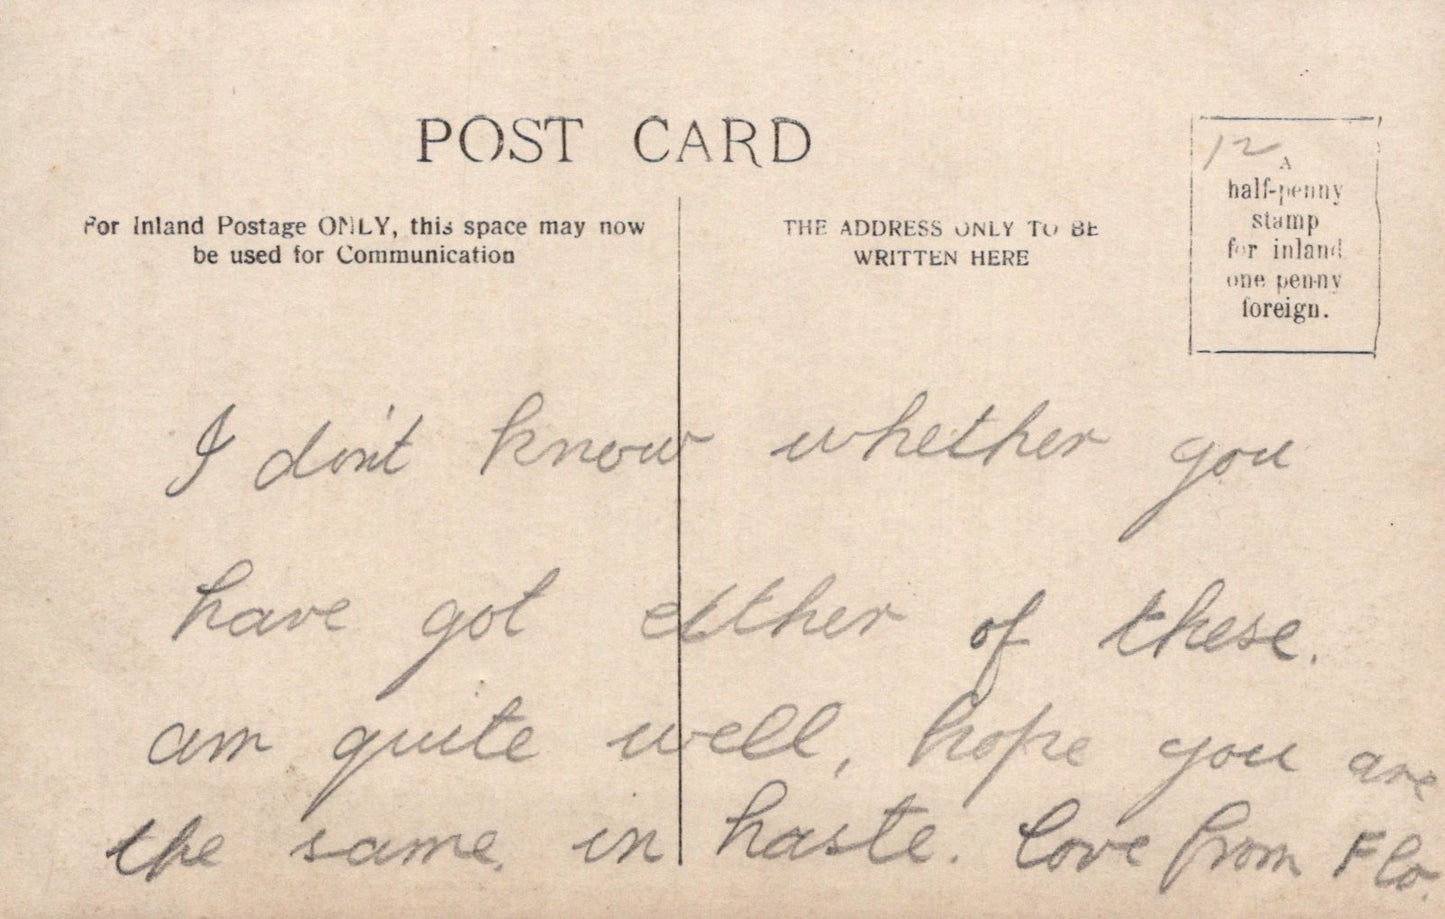 POST CARD
For Inland Postage ONLY, this space may now
be used for Communication
THE ADDRESS ONLY TO BE
WRITTEN HERE
12
A
half-penny
stamp
for inland
one penny
foreign.
I don't know whether you
have got either of these.
am quite well, hope you are
the same. in haste. Love from Flo.